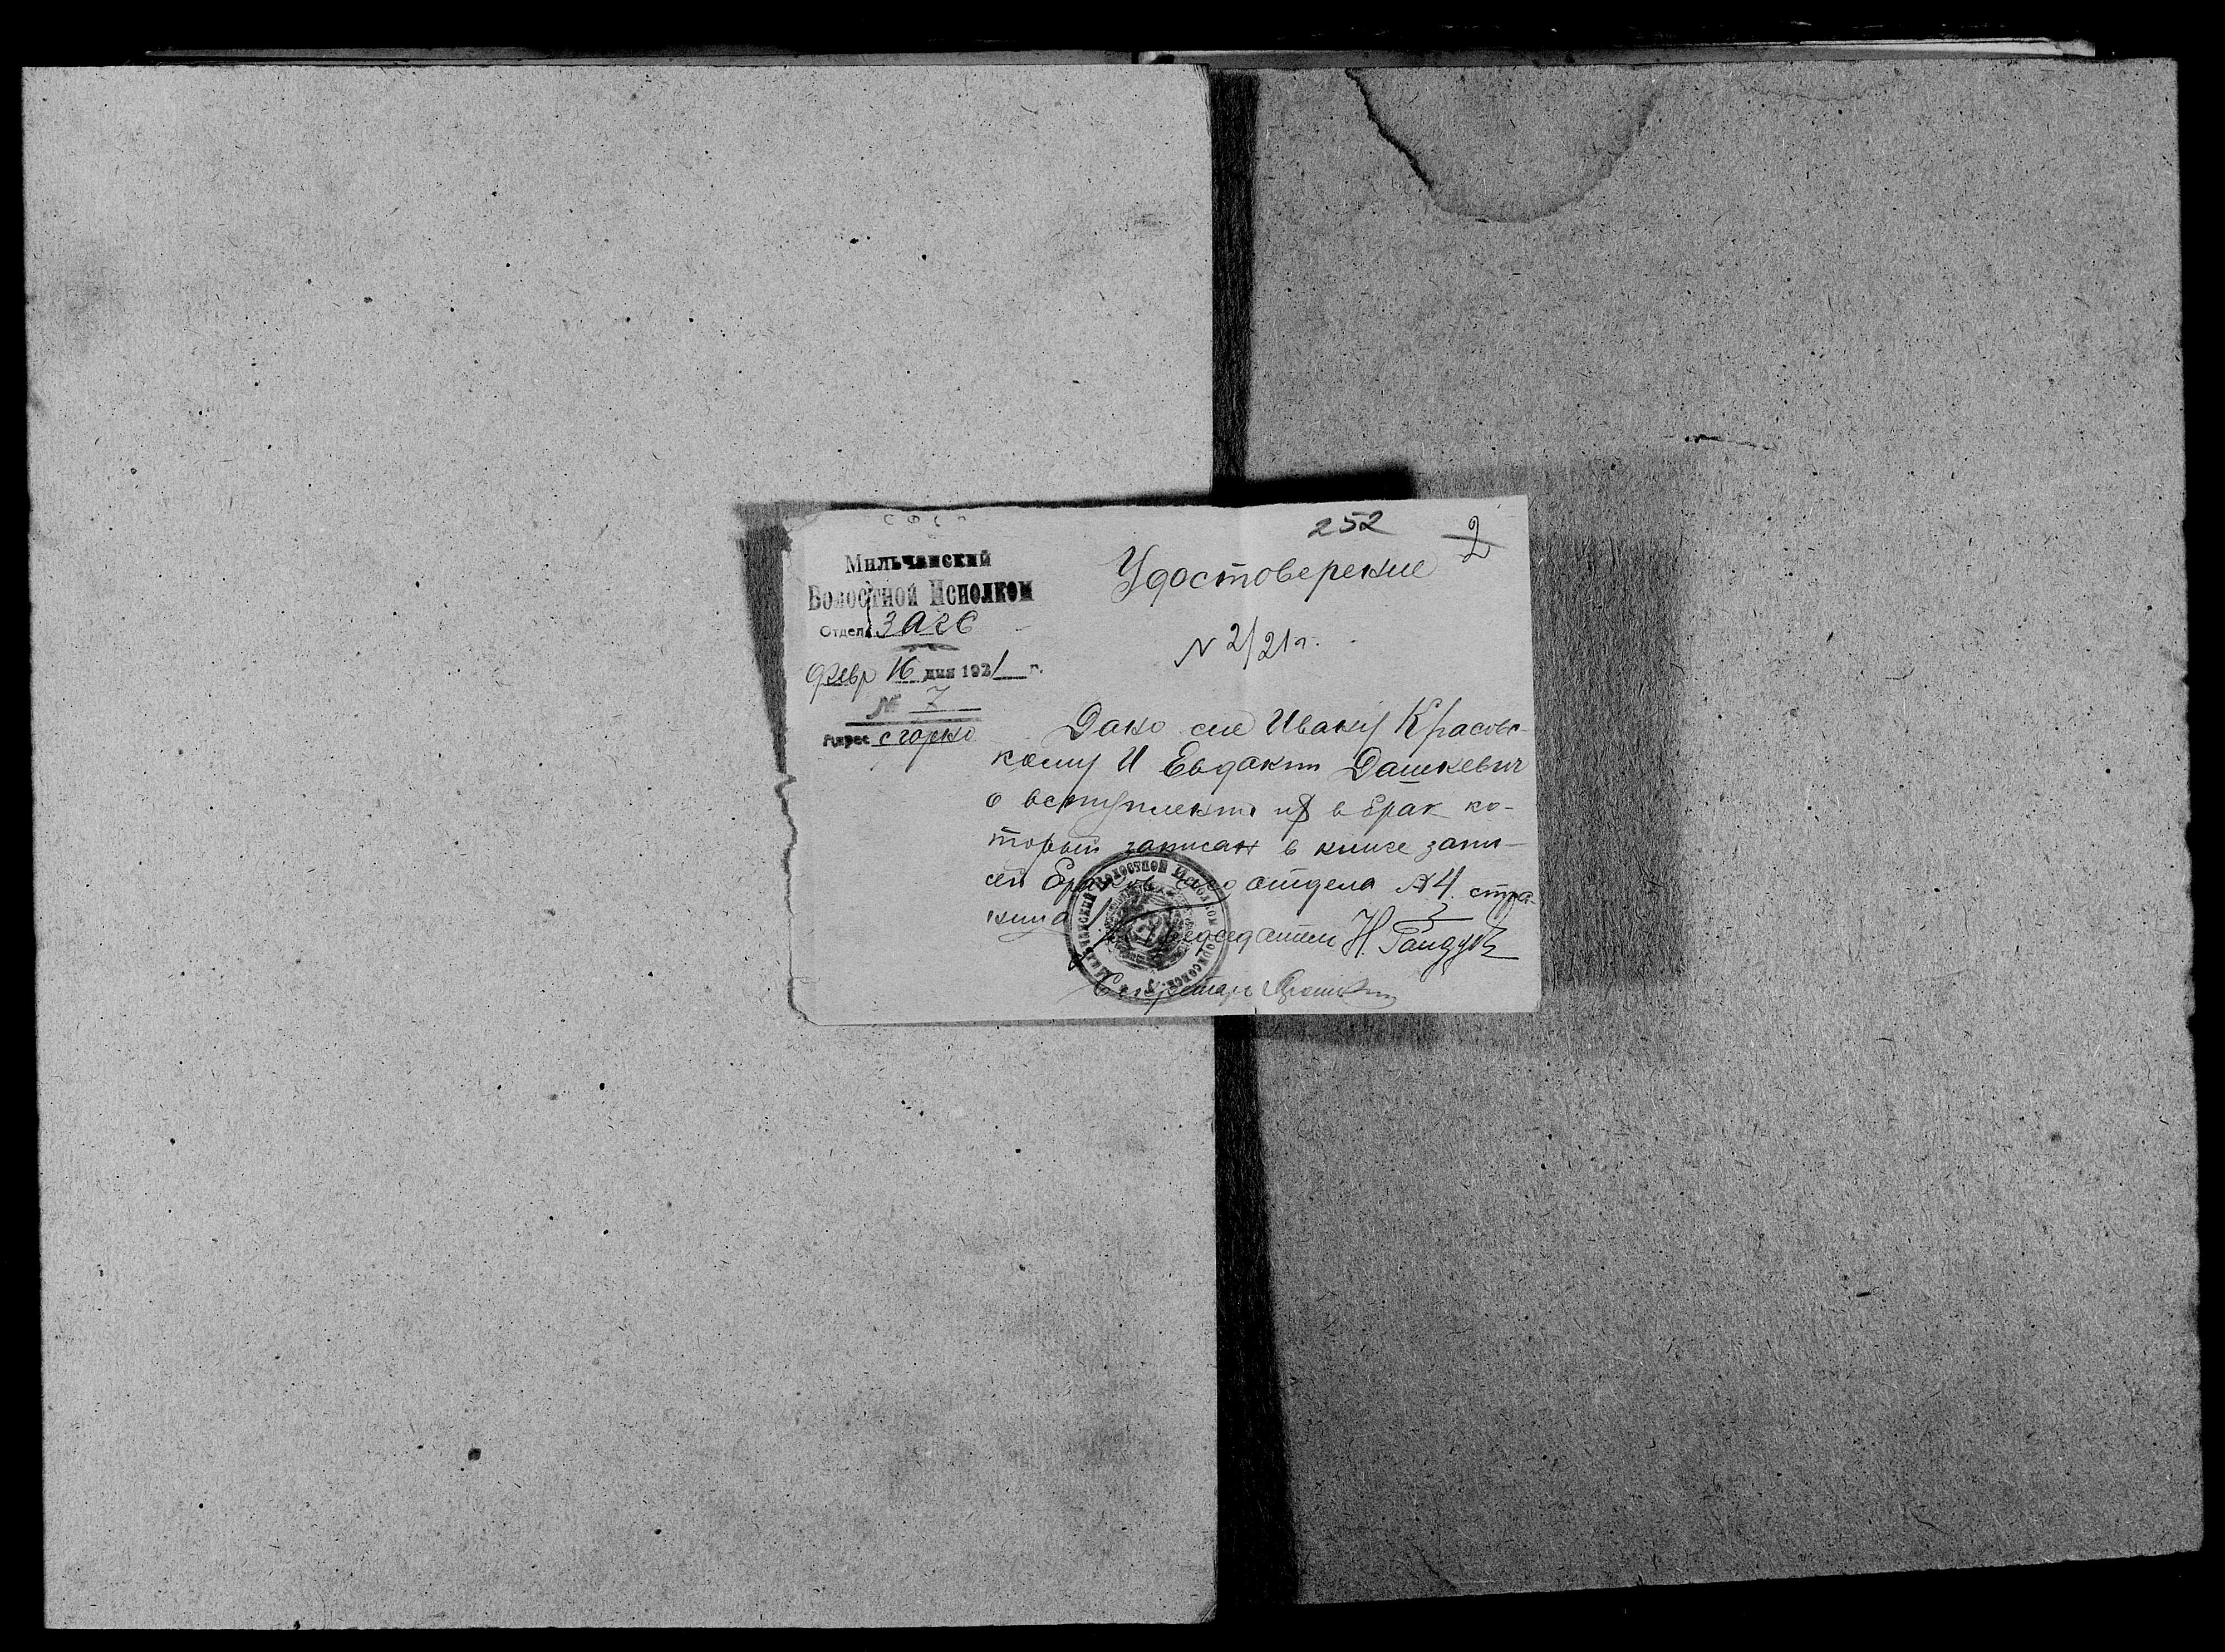 252 2
Мильчанский
Волостной Исполком
Отдел ЗАГС
февр 16 дня 1921 г.
№ 7
Адрес
Удостоверение
N 2/21 г.
Дано сие Ивану Красовс-
кому И Евдокии Дашкевич
о вступлении их в брак ко-
торый записан в книге запи-
сей браков сего отдела №4 стра-
ница
Председатель Н.
Секретарь
Волостной